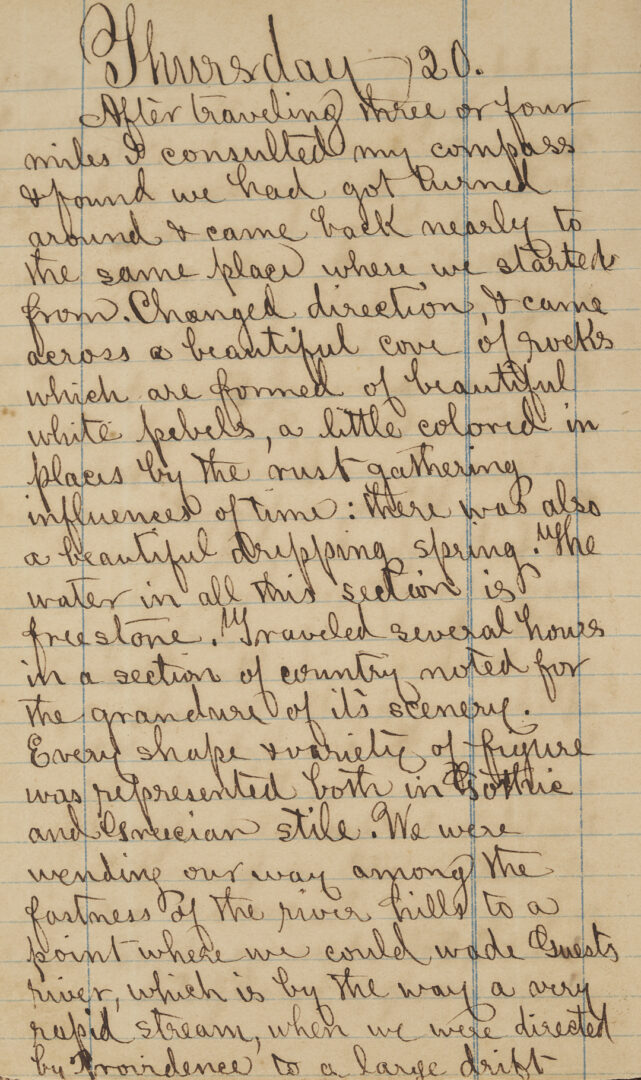 Thursday, 20.
After traveling three or four
miles I consulted my compass
& found we had got turned
around & came back nearly to
the same place where we started
from. Changed direction, & came
across a beautiful cove of rocks
which are formed of beautiful
white pebels, a little colored in
places by the rust gathering
influences of time: there was also
a beautiful dripping spring. The
water in all this section is
freestone. Traveled several hours
in a section of country noted for
the grandure of it's scenery.
Every shape & variety of figure
was represented both in Gothic
and Greecian stile. We were
wending our way among the
fastness of the river hills to a
point where we could wade Guests
river, which is by the way a very
rapid stream, when we were directed
by Providence to a large drift